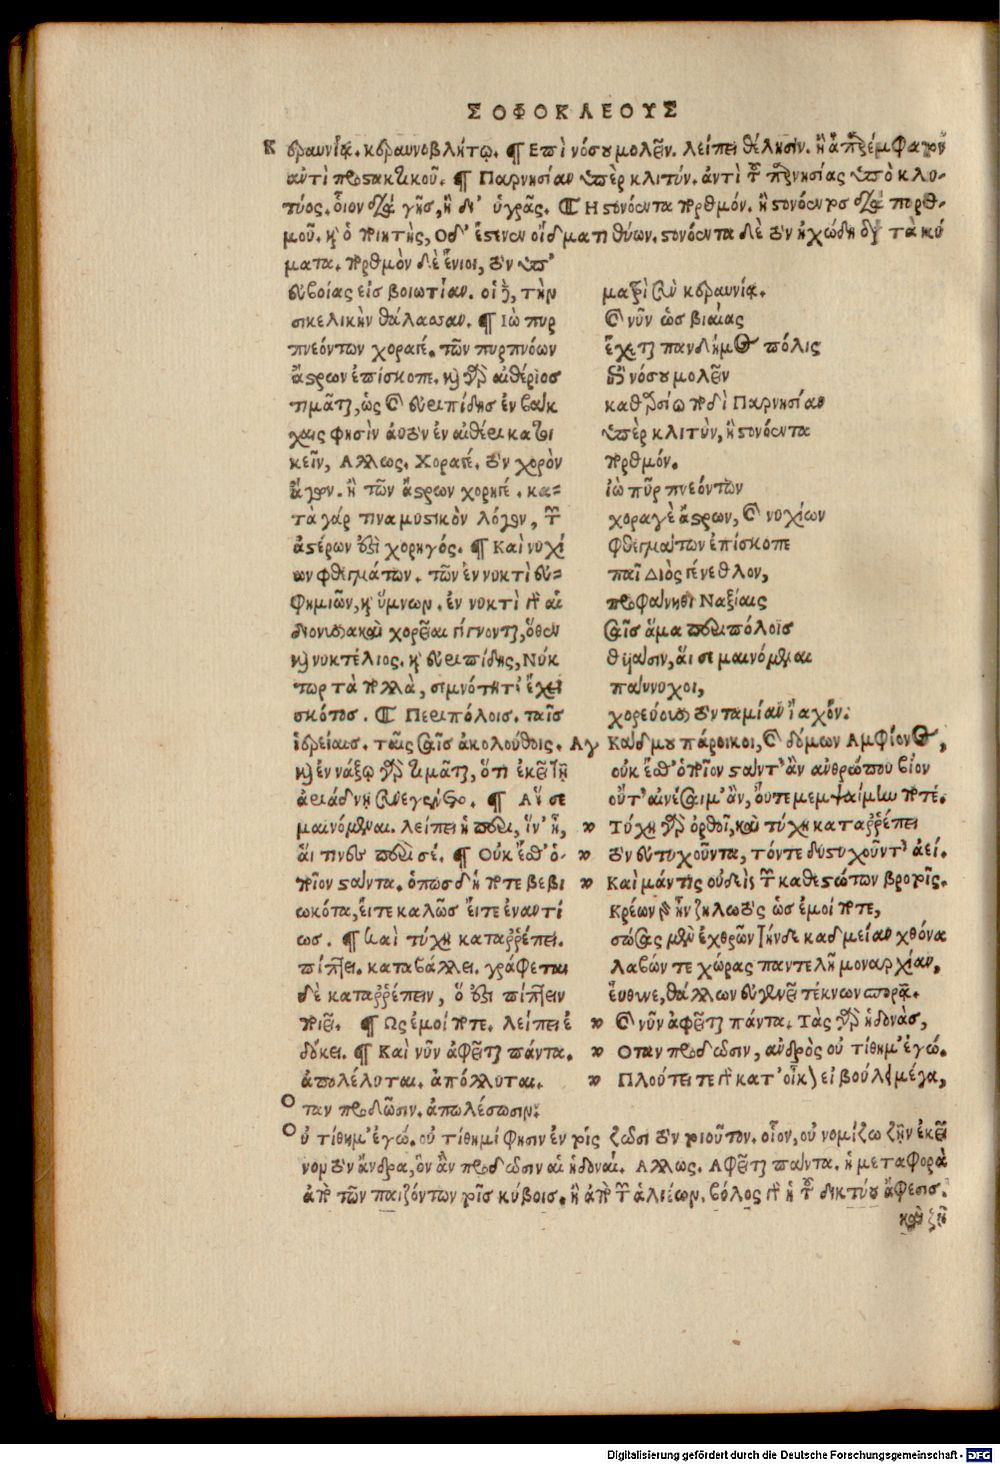 ΣΟΦΟΚΛΕΟΥΣ
Κ εραυνίᾳ. κεραυνοβλήτῳ. ¶ Ἐπὶ νόσου μολεῖν. λείπει θέλησιν. ἢ ἀπαρέμφατον
ἀντὶ προστακτικοῦ. ¶ Παρνησίαν ὑπὲρ κλιτύν. ἀντὶ τοῦ παρνησίας ὑπὸ κλι-
τύος. οἷον διὰ γῆς, ἢ δι' ὑγρᾶς. ¶ Ἢ στονόεντα πορθμόν. ἢ στονόεντος διὰ πορθ-
μοῦ. καὶ ὁ ποιητὴς, Ὁδ' ἔστενεν οἴδματι θύων. στονόεντα δὲ τὸν ἠχώδη διὰ τὰ κύ
ματα. πορθμὸν δὲ ἔνιοι, τὸν ὑπ'
εὐβοίας εἰς βοιωτίαν. οἱ δὲ, τὴν
σικελικὴν θάλασσαν. ¶ Ἰὼ πυρ
πνεόντων χοραγέ. τῶν πυρπνόων
ἄστρων ἐπίσκοπε. καὶ γὰρ αἰθέριος
τιμᾶται, ὡς καὶ εὐριπίδης ἐν βάκ
χαις φησὶν αὐτὸν ἐν αἰθέρι κατοι
κεῖν, Ἄλλως. Χοραγέ. τὸν χορὸν
ἄγων. ἢ τῶν ἄστρων χορηγέ. κα-
τὰ γάρ τινα μυστικὸν λόγον, τῶν
ἀστέρων ἐστὶ χορηγός. ¶ Καὶ νυχί
ων φθεγμάτων. τῶν ἐν νυκτὶ εὐ-
φημιῶν, καὶ ὕμνων. ἐν νυκτὶ γὰρ αἱ
διονυσιακαὶ χορεῖαι γίγνονται, ὅθεν
καὶ νυκτέλιος. καὶ εὐριπίδης, Νύκ
τωρ τὰ πολλὰ, σεμνότητ' ἔχει
σκότος. ¶ Περιπόλοις. ταῖς
ἱερείαις. ταῖς σαῖς ἀκολούθοις.
καὶ ἐν νάξῳ γὰρ τιμᾶται, ὅτι ἐκεῖ τῇ
ἀριάδνῃ συνεγένετο. ¶ Αἵ σε
μαινόμεναι. λείπει ἡ περὶ, ἵν' ᾖ,
αἵ τινες περὶ σέ. ¶ Οὐκ ἔσθ' ὁ-
ποῖον στάντα. ὁπωσδή ποτε βεβι
ωκότα, εἴτε καλῶς εἴτε ἐναντί
ως. ¶ Καὶ τύχη καταῤῥέπει.
πίπτει. καταβάλλει. γράφεται
δὲ καταῤῥέπειν, ὅ ἐστι πίπτειν
ποιεῖ. ¶ Ὡς ἐμοί ποτε. λείπει ἐ
δόκει. ¶ Καὶ νῦν ἀφεῖται πάντα.
ἀπολέλυται. ἀπόλλυται.
Ὅ ταν προδῶσιν. ἀπωλέσωσιν.
Οὐ τίθημ' ἐγώ. οὐ τίθημί φησιν ἐν τοῖς ζῶσι τὸν τοιοῦτον. οἷον, οὐ νομίζω ζῆν ἐκεῖ
νον τὸν ἄνδρα, ὃν ἂν προδῶσιν αἱ ἡδοναί. Ἄλλως. Ἀφεῖται πάντα. ἡ μεταφορὰ
ἀπὸ τῶν παιζόντων τοῖς κύβοις. ἢ ἀπὸ τῶν ἁλιέων. βόλος γὰρ ἡ τοῦ δικτύου ἄφεσις.
καὶ ζῆ
μαξὶ σὺν κεραυνίᾳ.
Καὶ νῦν ὡς βιαίας
ἔχεται πανδήμος πόλις
ἐπὶ νόσου μολεῖν
καθαρσίῳ ποδὶ Παρνησίαν
ὑπὲρ κλιτὺν, ἢ στονόεντα
πορθμόν.
ἰὼ πῦρ πνεόντων
χοραγὲ ἄστρων, καὶ νυχίων
φθεγμάτων ἐπίσκοπε
παῖ Διὸς γένεθλον,
προφάνηθι Ναξίαις
σαῖς ἅμα περιπόλοις
θυάσιν, αἵ σε μαινόμεναι
πάννυχοι,
χορεύουσι τὸν ταμίαν ἴακχον.
Αγ Κάδμου πάροικοι, καὶ δόμων Ἀμφίονος,
οὐκ ἔσθ' ὁποῖον στάντ' ἂν ἀνθρώπου βίον
οὔτ' αἰνέσαιμ' ἂν, οὔτε μεμψαίμην ποτέ.
Τύχη γὰρ ὀρθοῖ, καὶ τύχη καταῤῥέπει
τὸν εὐτυχοῦντα, τόν τε δυστυχοῦντ' ἀεί.
Καὶ μάντις οὐδεὶς τῶν καθεστώτων βροτοῖς.
Κρέων γὰρ ἦν ζηλωτὸς ὡς ἐμοί ποτε,
σώσας μὲν ἐχθρῶν τήνδε καδμείαν χθόνα
λαβών τε χώρας παντελῆ μοναρχίαν,
εὔθυνε, θάλλων εὐγενεῖ τέκνων σπορᾷ.
Καὶ νῦν ἀφεῖται πάντα. Τὰς γὰρ ἡδονὰς,
Ὅταν προδῶσιν, ἀνδρὸς οὐ τίθημ' ἐγώ.
Πλούτει τε γὰρ κατ' οἶκον εἰ βούλει μέγα,
Digitalisierung gefördert durch die Deutsche Forschungsgemeinschaft - DFG